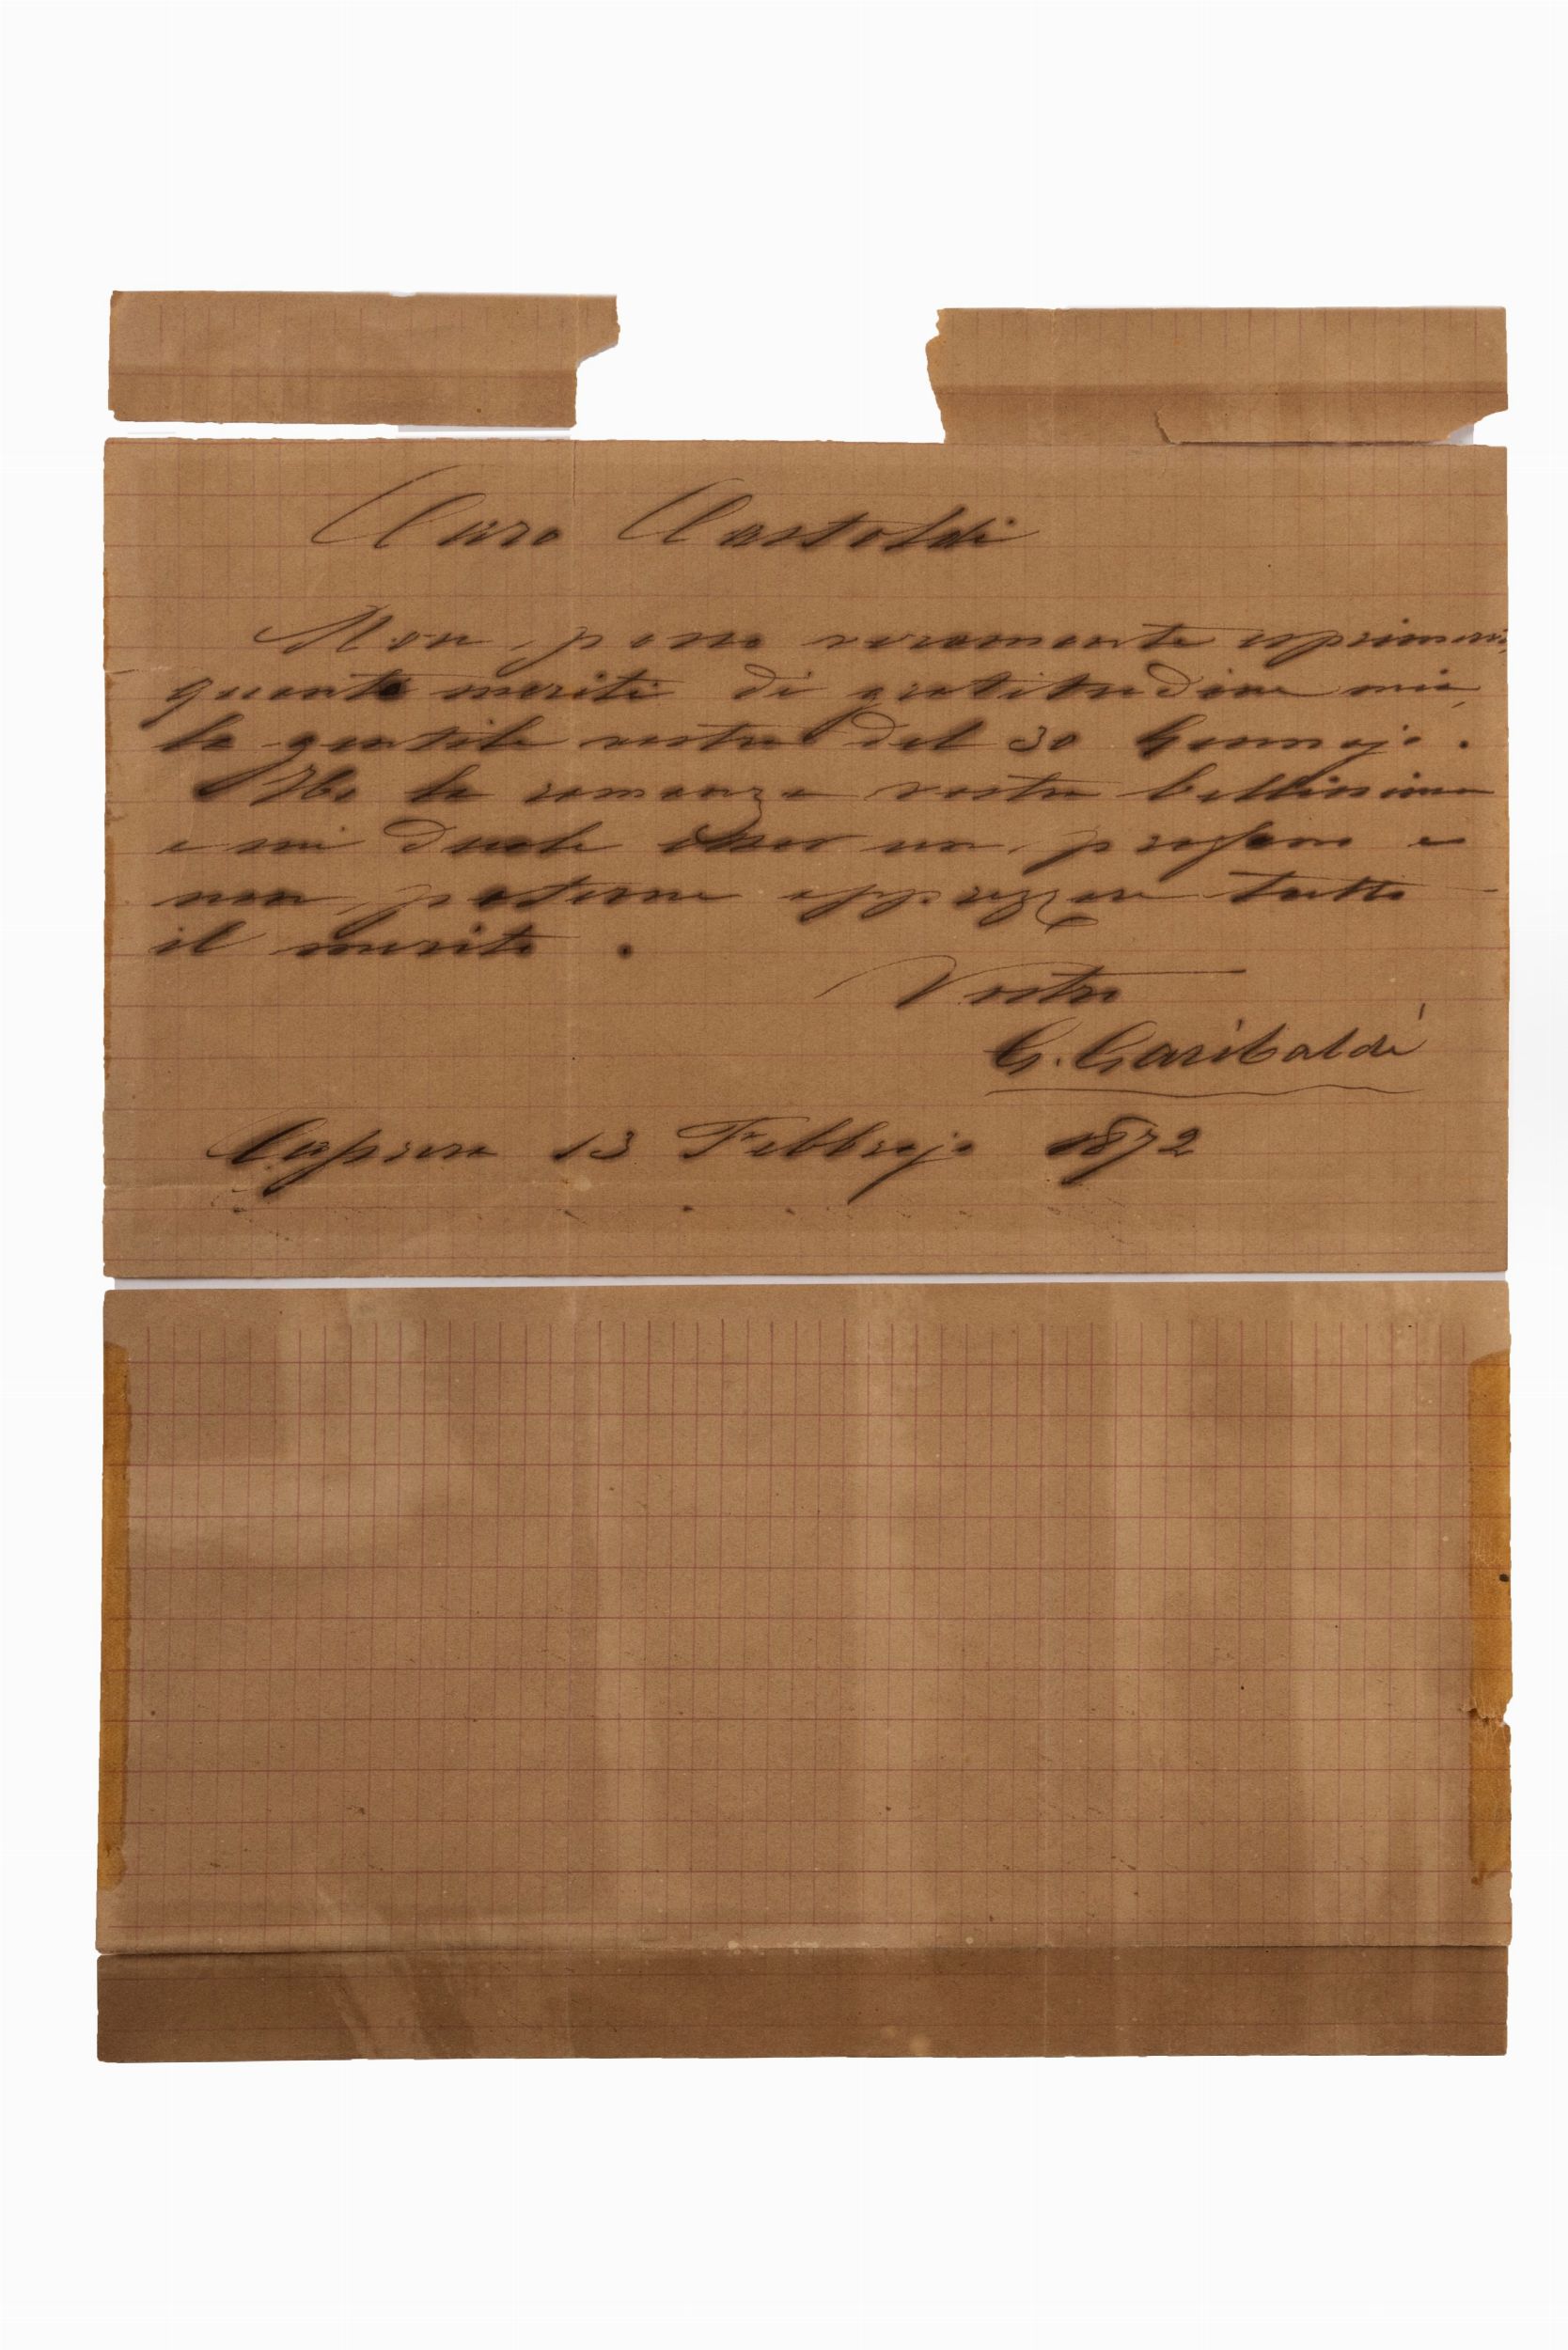 Caro Castoldi
Non posso veramente esprimervi
quanto meriti di gratitudine mia
la gentile vostra del 30 Gennajo.
Ebbi la romanza vostra bellissima
e mi duole esser un profano e
non poterne apprezzare tutto
il merito.
Vostro
G. Garibaldi
Caprera 13 Febbrajo 1872